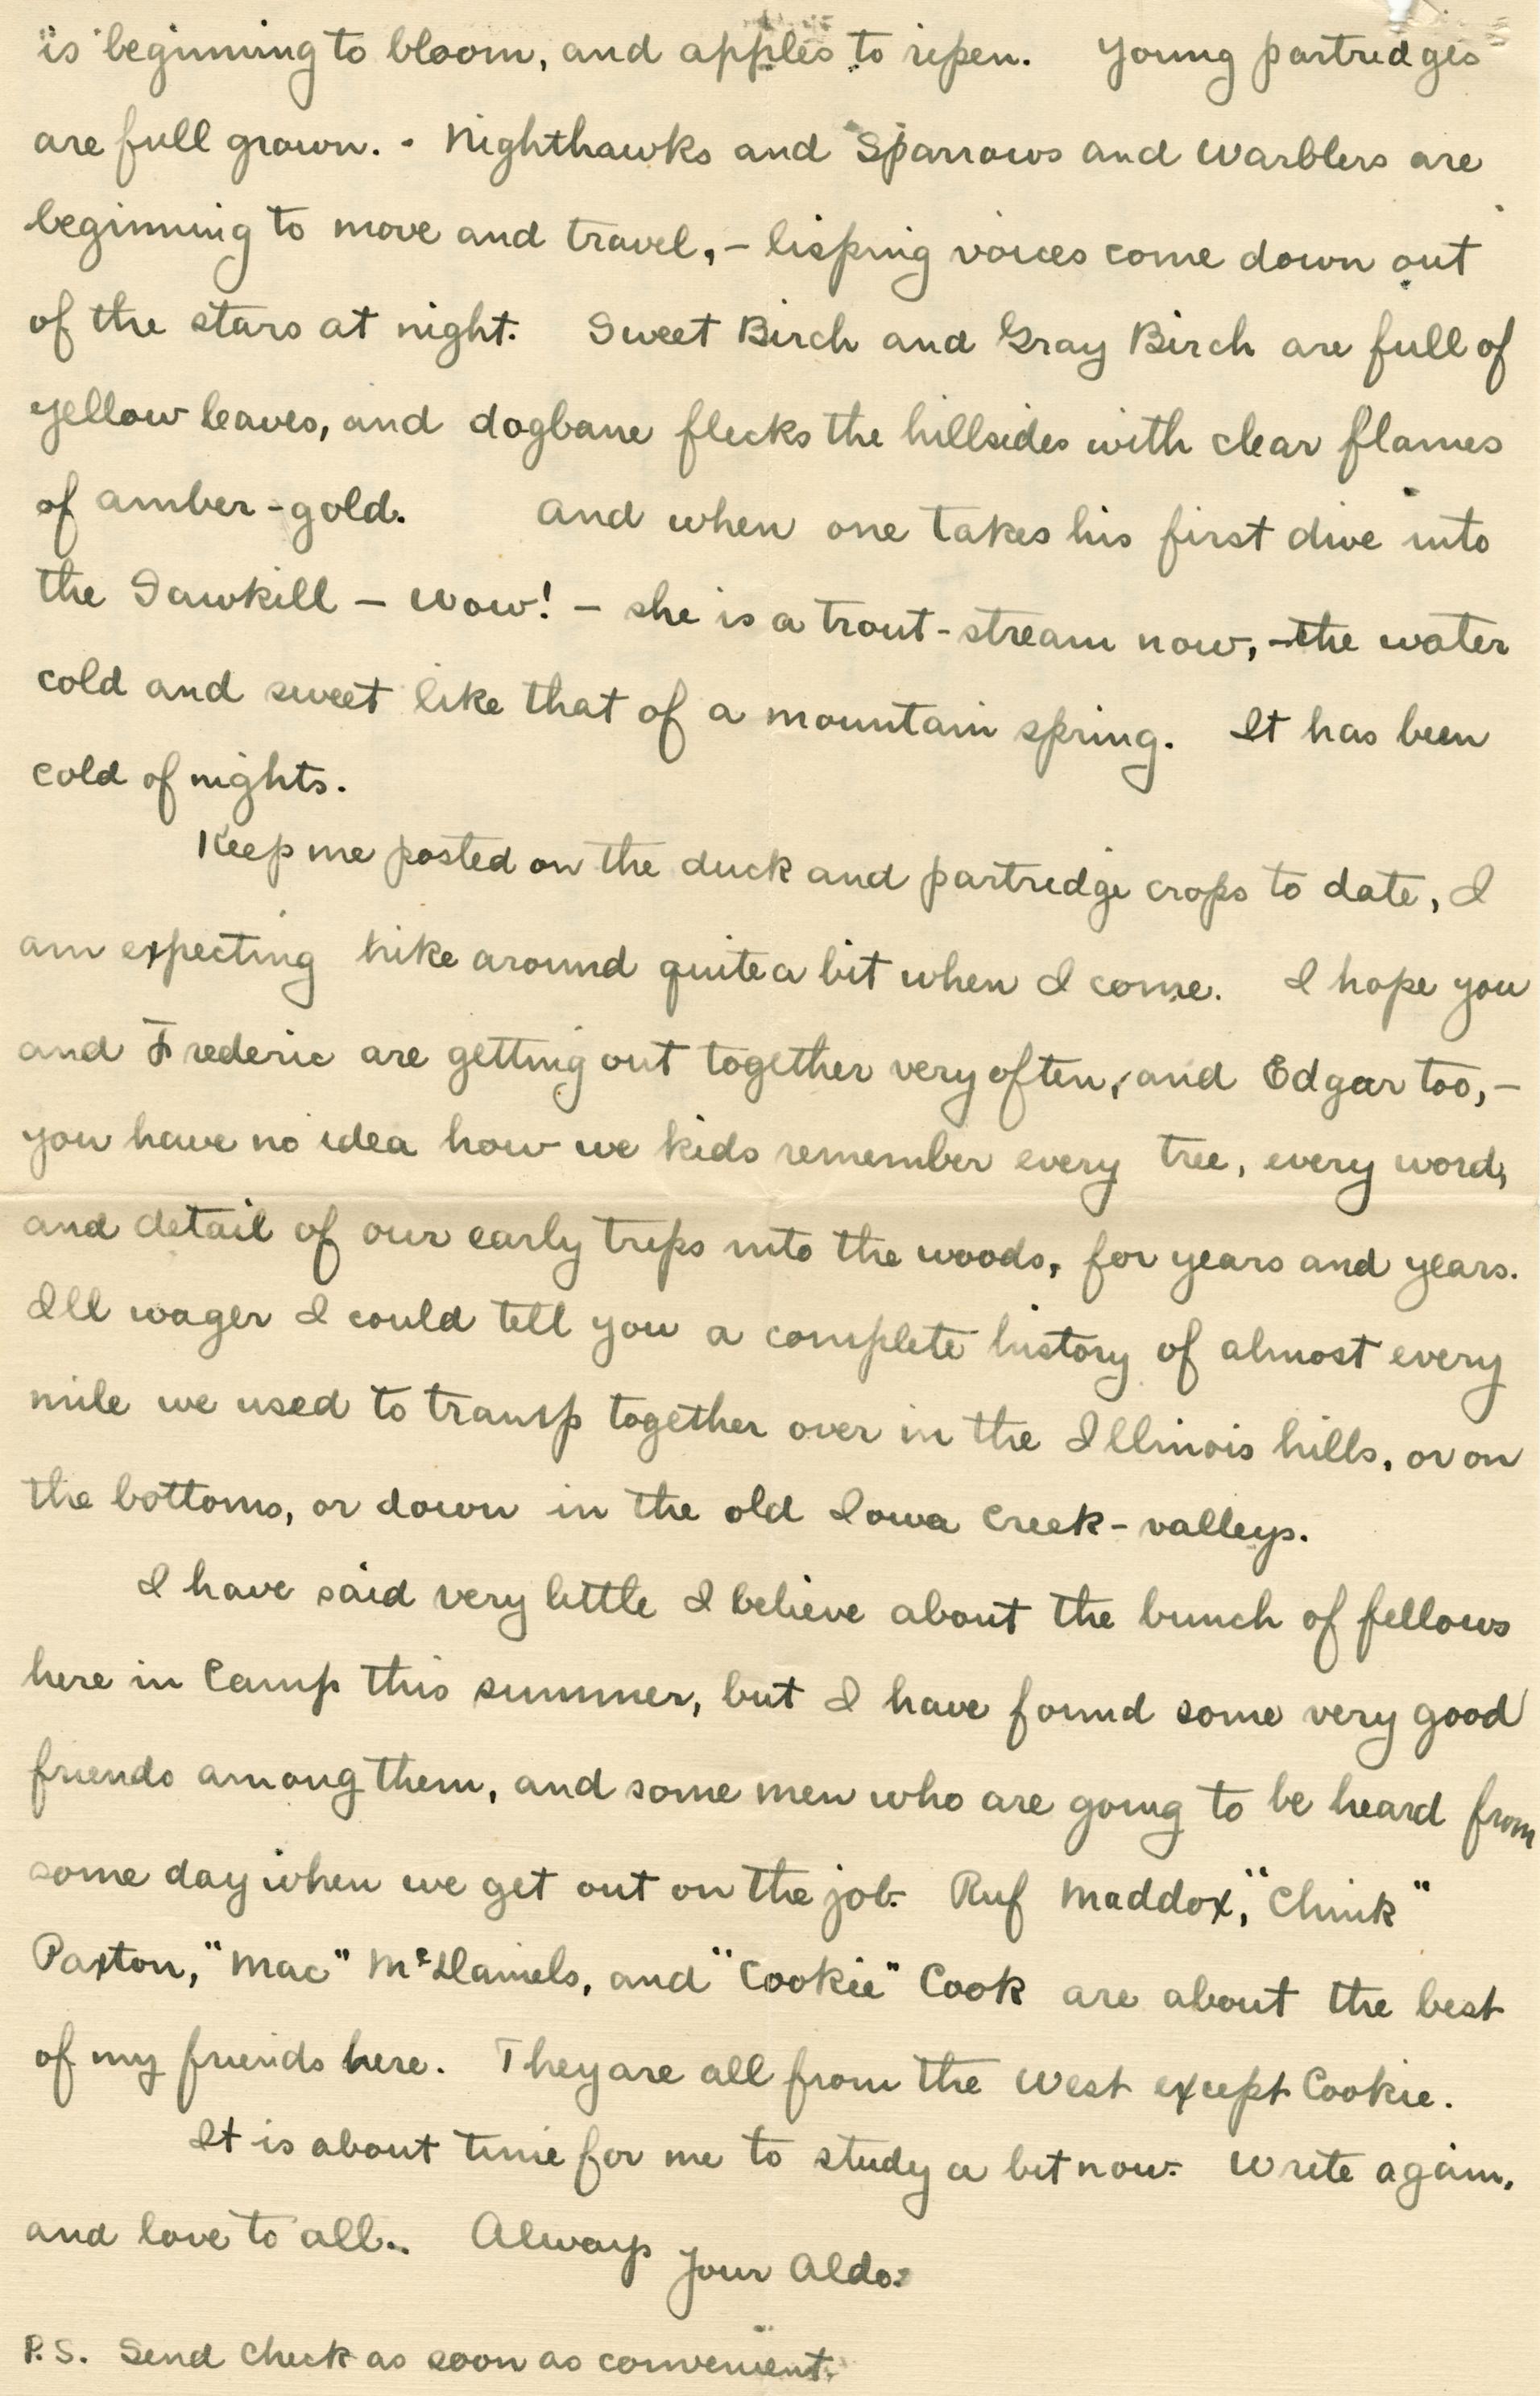 is beginning to bloom, and apples to ripen. Young partredges
are full grown. - Nighthawks and Sparrows and Warblers are
beginning to move and travel, – lisping voices come down out
of the stars at night. Sweet Birch and Gray Birch are full of
yellow leaves, and dogbane flecks the hillsides with clear flames
of amber-gold. And when one takes his first dive into
the Sawkill – Wow! – she is a trout-stream now, – the water
cold and sweet like that of a mountain spring. It has been
cold of nights.
Keep me posted on the duck and partredge crops to date, I
am expecting hike around quite a bit when I come. I hope you
and Frederic are getting out together very often, and Edgar too, –
you have no idea how we kids remember every tree, every word,
and detail of our early trips into the woods, for years and years.
Ill wager I could tell you a complete history of almost every
mile we used to tramp together over in the Illinois hills, or on
the bottoms, or down in the old Iowa Creek-valleys.
I have said very little I believe about the bunch of fellows
here in Camp this summer, but I have found some very good
friends among them, and some men who are going to be heard from
some day when we get out on the job. Ruf Maddox, "Chink"
Paxton, "Mac" McDaniels, and "Cookie" Cook are about the best
of my friends here. They are all from the West except Cookie.
It is about time for me to study a bit now. Write again,
and love to all.. Always your Aldo.
P.S. Send check as soon as convenient.